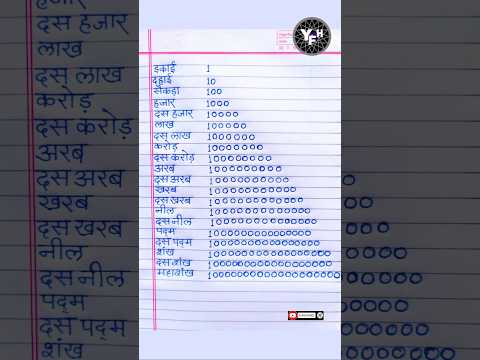 YFH
इकाई 1
दहाई 10
सैकड़ा 100
हजार 1000
दस हजार 10000
लाख 100000
दस लाख 1000000
करोड़ 10000000
दस करोड़ 100000000
अरब 1000000000
दस अरब 10000000000
खरब 100000000000
दस खरब 1000000000000
नील 10000000000000
दस नील 100000000000000
पद्म 1000000000000000
दस पद्म 10000000000000000
शंख 100000000000000000
दस शंख 1000000000000000000
महाशंख 10000000000000000000
दस हजार
लाख
दस लाख
करोड़
दस करोड़
अरब
दस अरब
खरब
दस खरब
नील
दस नील
पद्म
दस पद्म
शंख